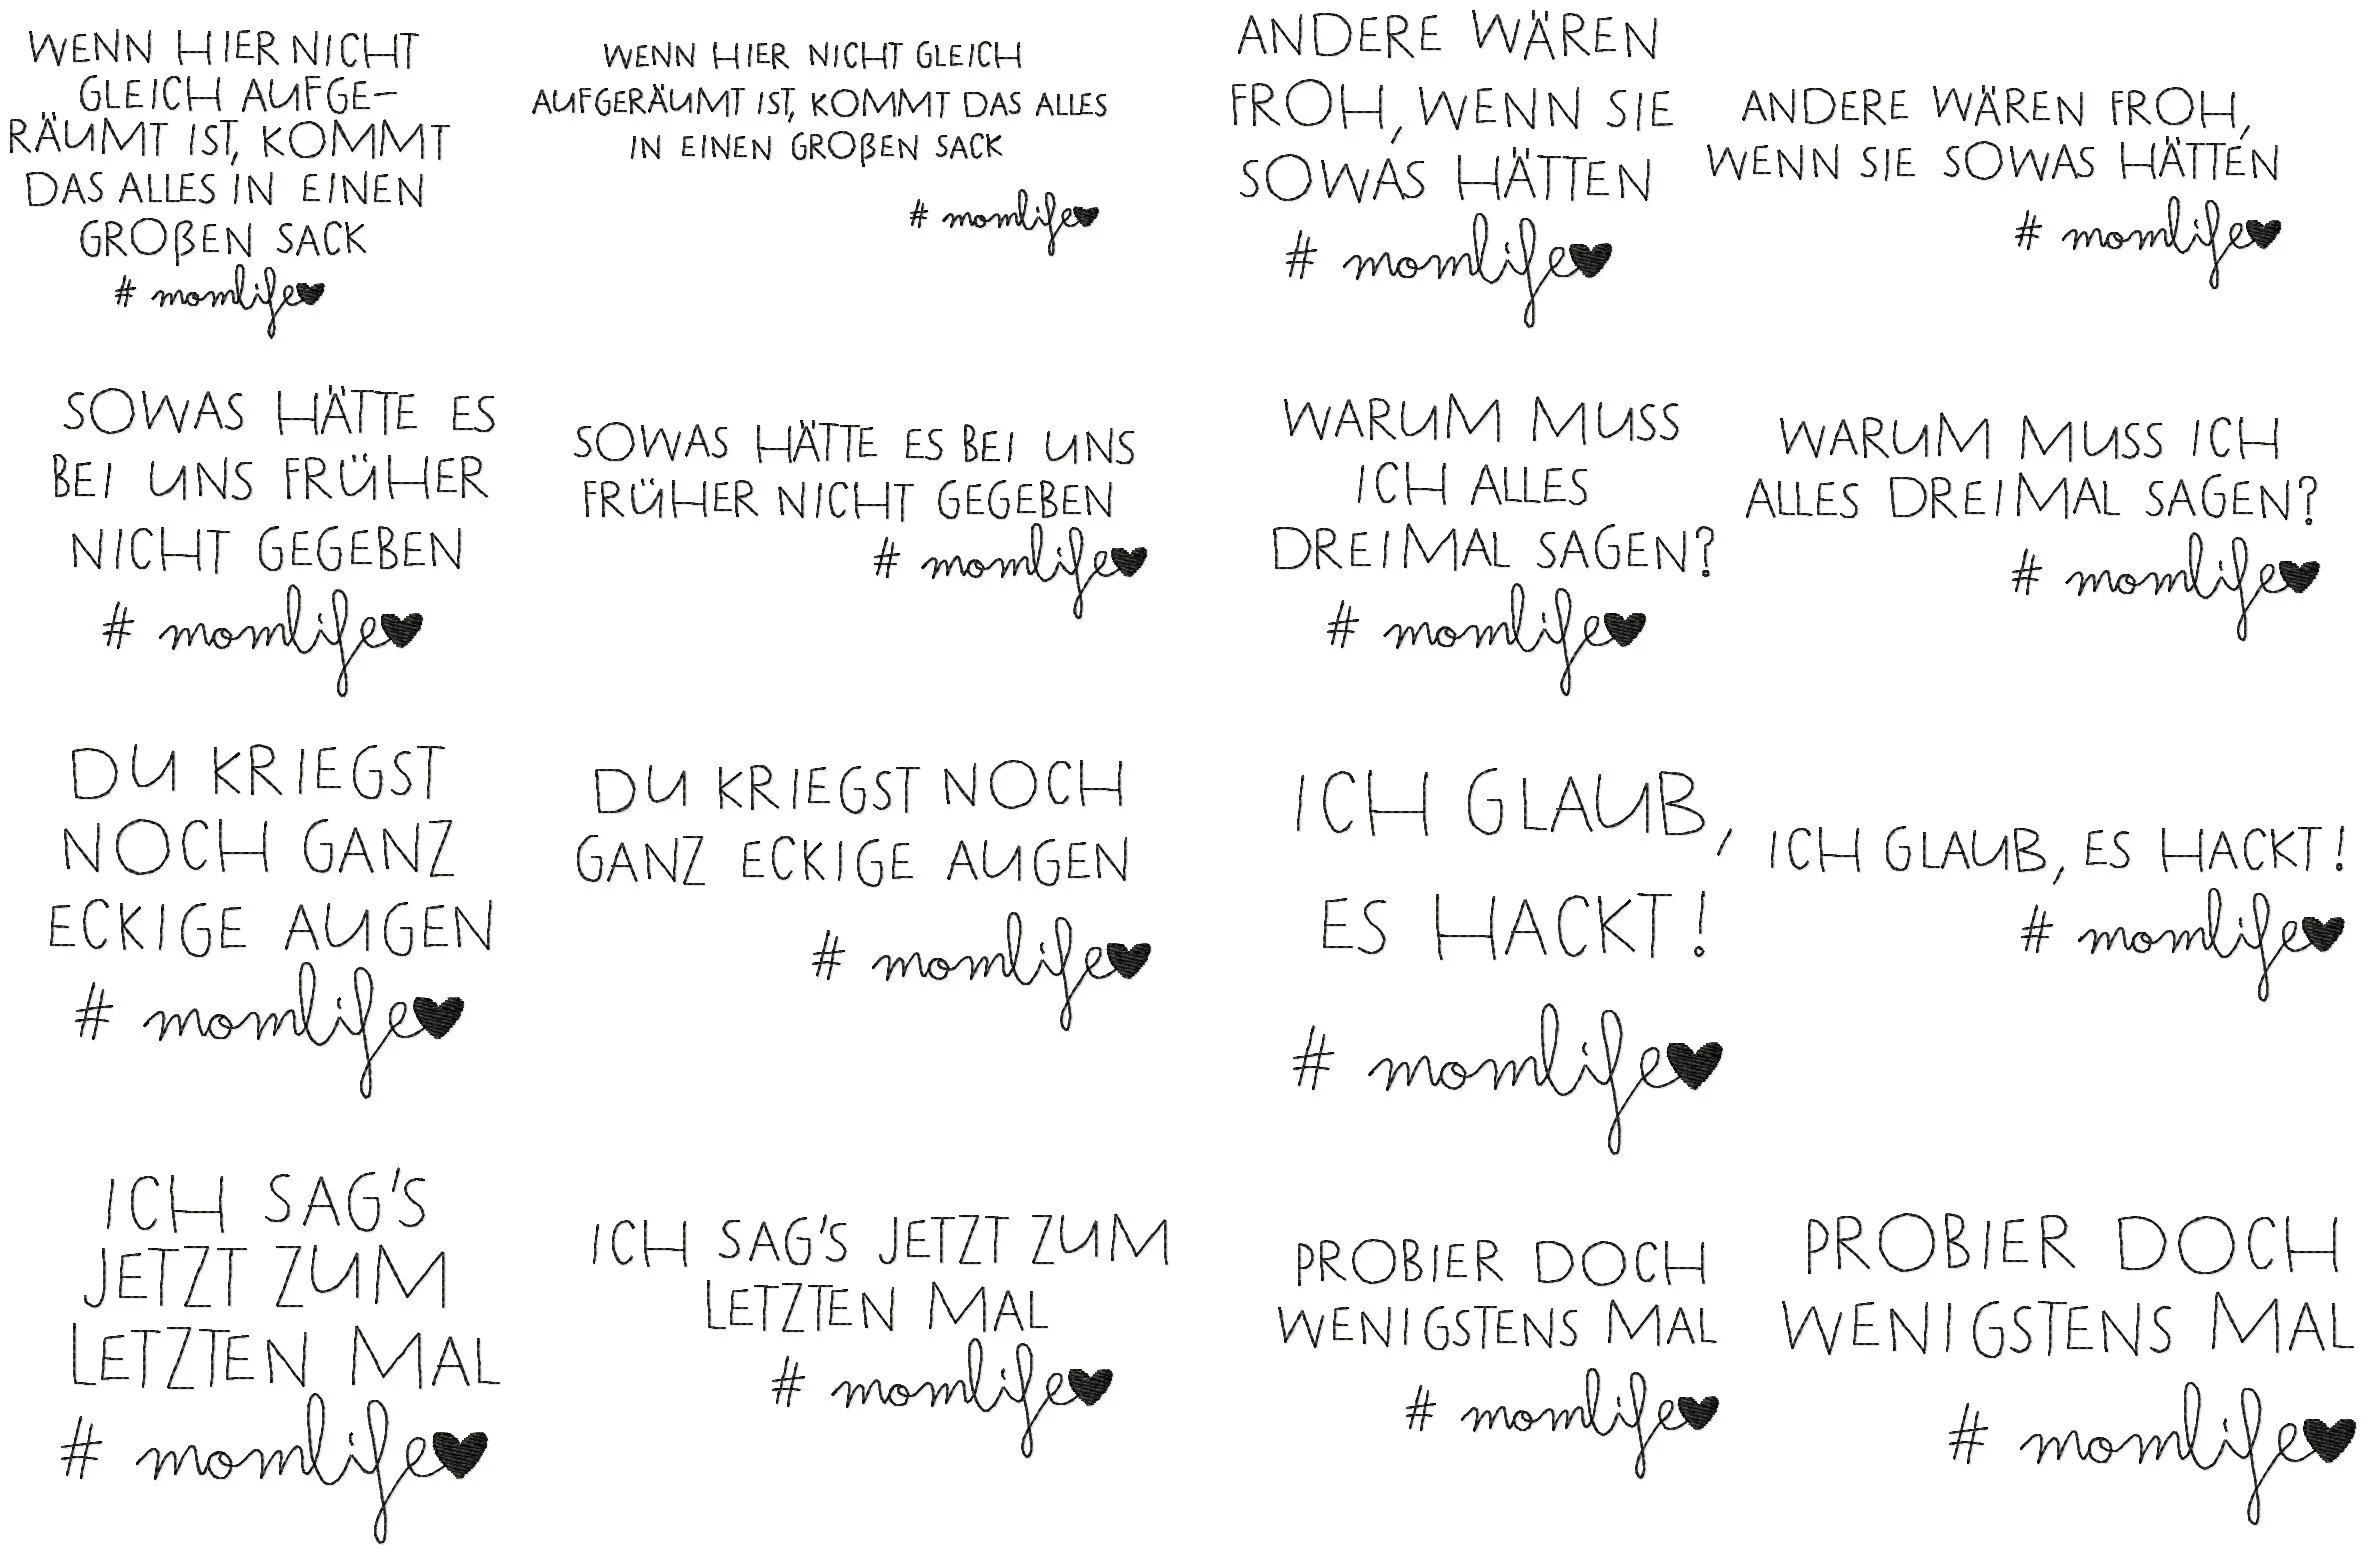 WENN HIER NICHT
GLEICH AUFGE-
RÄUMT IST, KOMMT
DAS ALLES IN EINEN
GROßEN SACK
# momlife
WENN HIER NICHT GLEICH
AUFGERÄUMT IST, KOMMT DAS ALLES
IN EINEN GROßEN SACK
# momlife
ANDERE WÄREN
FROH, WENN SIE
SOWAS HÄTTEN
# momlife
ANDERE WÄREN FROH,
WENN SIE SOWAS HÄTTEN
# momlife
SOWAS HÄTTE ES
BEI UNS FRÜHER
NICHT GEGEBEN
# momlife
SOWAS HÄTTE ES BEI UNS
FRÜHER NICHT GEGEBEN
# momlife
WARUM MUSS
ICH ALLES
DREIMAL SAGEN?
# momlife
WARUM MUSS ICH
ALLES DREIMAL SAGEN?
# momlife
DU KRIEGST
NOCH GANZ
ECKIGE AUGEN
# momlife
DU KRIEGST NOCH
GANZ ECKIGE AUGEN
# momlife
ICH GLAUB,
ES HACKT!
# momlife
ICH GLAUB, ES HACKT!
# momlife
ICH SAG'S
JETZT ZUM
LETZTEN MAL
# momlife
ICH SAG'S JETZT ZUM
LETZTEN MAL
# momlife
PROBIER DOCH
WENIGSTENS MAL
# momlife
PROBIER DOCH
WENIGSTENS MAL
# momlife